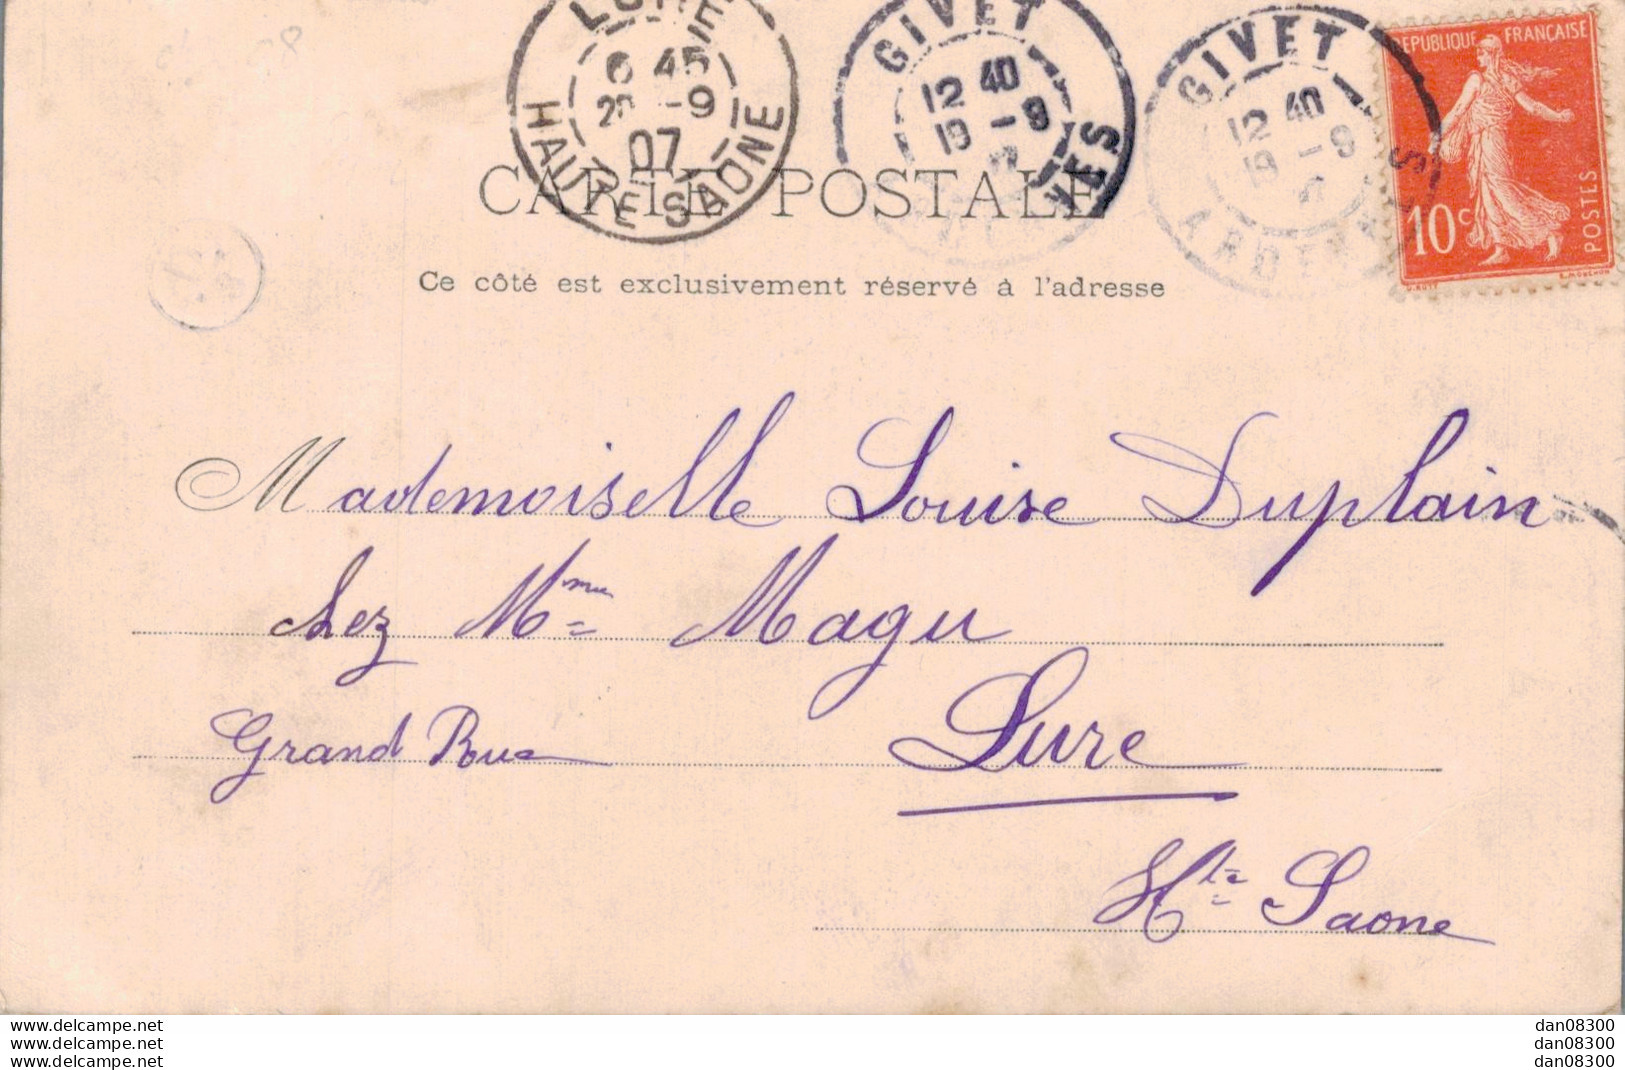 LURE
6 45
20 -9
07
HAUTE SAÔNE
GIVET
12 40
19 -9
GIVET
12 40
19 -9
ARDENNES
REPUBLIQUE FRANÇAISE
10c
POSTES
CARTE POSTALE
Ce côté est exclusivement réservé à l'adresse
Mademoiselle Louise Duplain
chez Mme Magu
Grand Rue Lure
Hte Saone
www.delcampe.net
www.delcampe.net
www.delcampe.net
dan08300
dan08300
dan08300